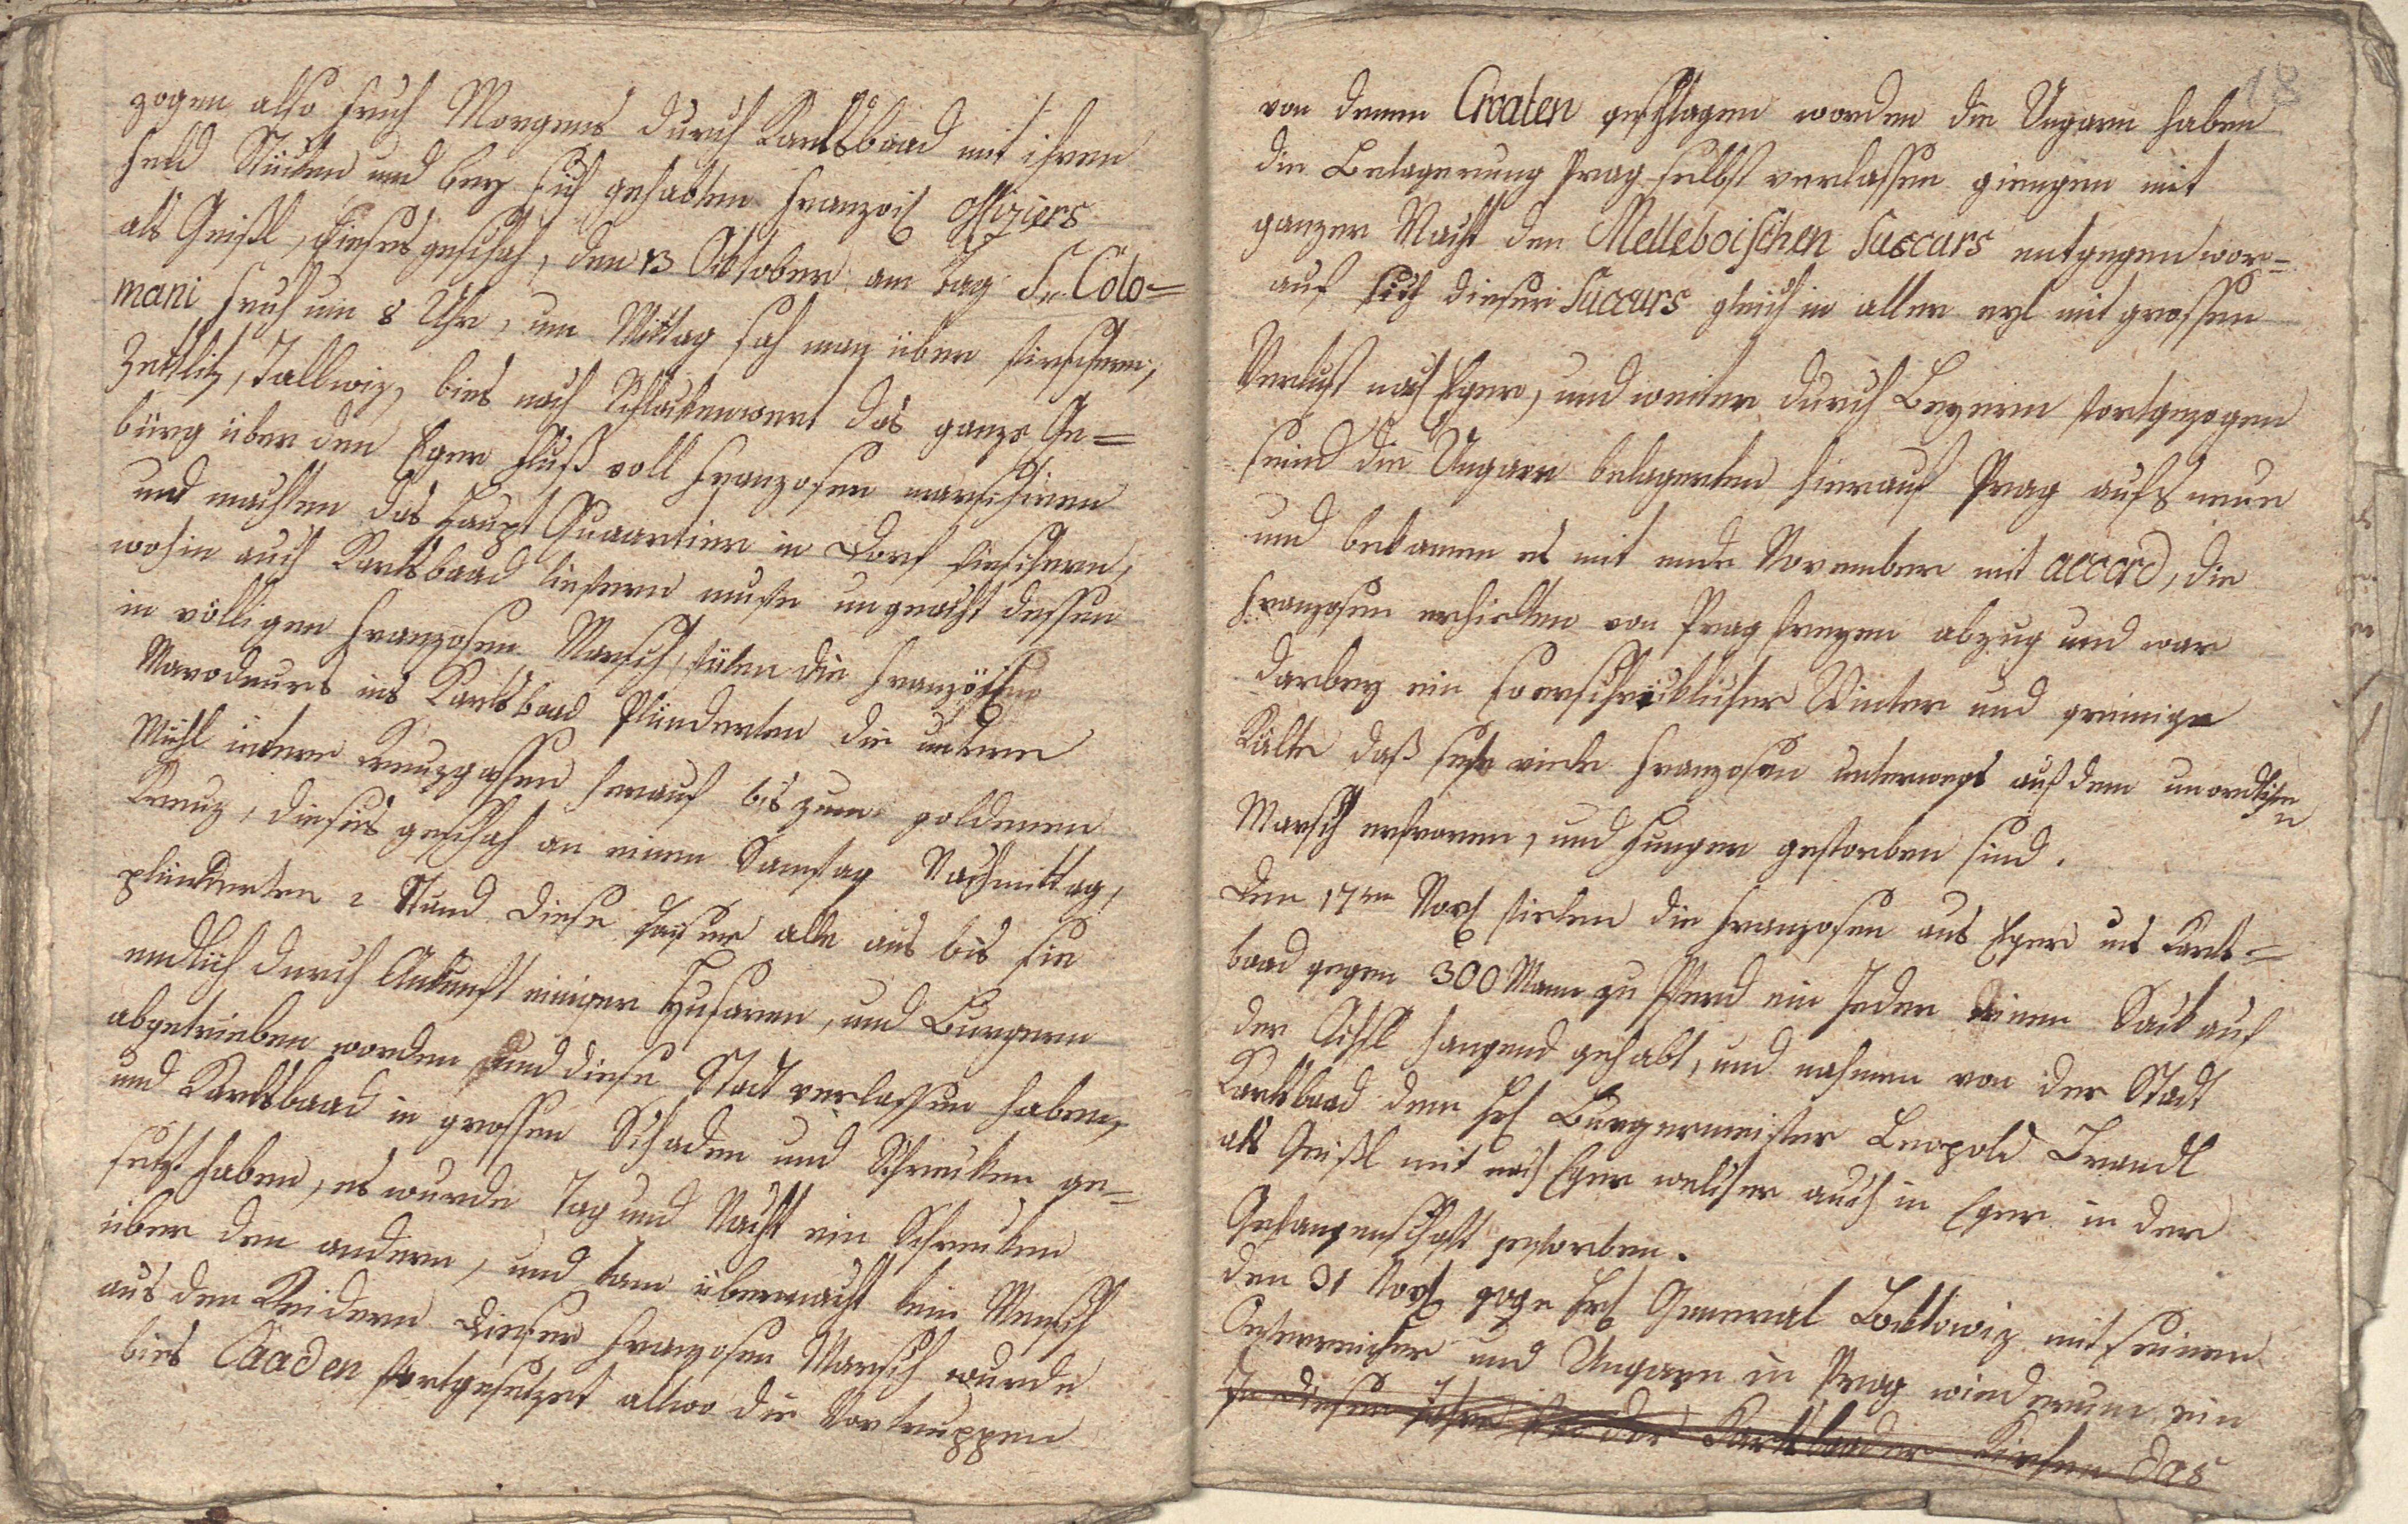 zogen also fruh Morgens durch Karlsbaad mit ihren
Feld Stücken und bey sich gehabten Französ. Offiziers
als Geißl, dieses geschah, den 13 Oktober am Tag S. Colo=
mani fruh um 8 Uhr, um Mittag sah man über Fischern,
Zettlitz, Tallwiz, bies nach Schlackenwert das ganze Ge=
bürg über den Eger Fluß voll Franzosen marschiren
und machten das Haupt Quaartier in Dorf Fischern,
wohin auch Karlsbaad liefern muste ungeacht dessen
in völligen Franzosen Marsch, fülen die Französischen
Marodeurs ins Karlsbaad plünderten die untere
Mühl untere Kreuzgassen herauf bis zum goldenen
Kreuz, dieses geschah an einen Samstag Nachmittag,
plünderten 2 Stund diese Häuser alle aus bis sie
endlich durch Ankunft einiger Husaren, und Burgern
abgetrieben worden und diese Stadt verlassen haben,
und Karlsbaad in grossen Schaden und Schrecken ge=
setzt haben, es wurde Tag und Nacht ein Schrecken
über den andern, und kam übernacht kein Mensch
aus den Kleidern dieser Franzosen Marsch wurde
bies Caaden fortgesetzet allwo die Vortruppen
18
von denen Croaten geschlagen worden die Ungarn haben
die Belagerung Prag selbst verlassen giengen mit
ganzer Macht den Melleboischen Succurs entgegen wor=
auf sich dieser Succurs gleich in aller eyl mit grossen
Verlust nach Eger, und weiter durch Beyern fortgezogen
seind die Ungarn belagerten hierauf Prag aufs neue
und bekamen es mit ende November mit accord, die
Franzosen erhielten von Prag freyen abzug und war
darbey ein so erschröcklicher Winter und grimige
Kälte daß sehr viele Franzosen unterwegs auf dem unordlichen
Marsch erfroren, und Hunger gestorben sind.
Den 17ten Nov. fielen die Franzosen aus Eger ins Karls=
baad gegen 300 Mann zu Pferd ein Jeder einen Sack auf
der Achsl hangend gehabt, und nahmen von der Stadt
Karlsbaad dem H. Bürgermeister Leopold Trandl
als Geißl mit nach Eger welcher auch in Eger in der
Gefangenschaft gestorben.
den 31 Nov. zoge H. General Loblowiz mit seinen
Oesterreicher und Ungarn in Prag wiederum ein
In diesem Jahre der Karlsbaader Kirchen das